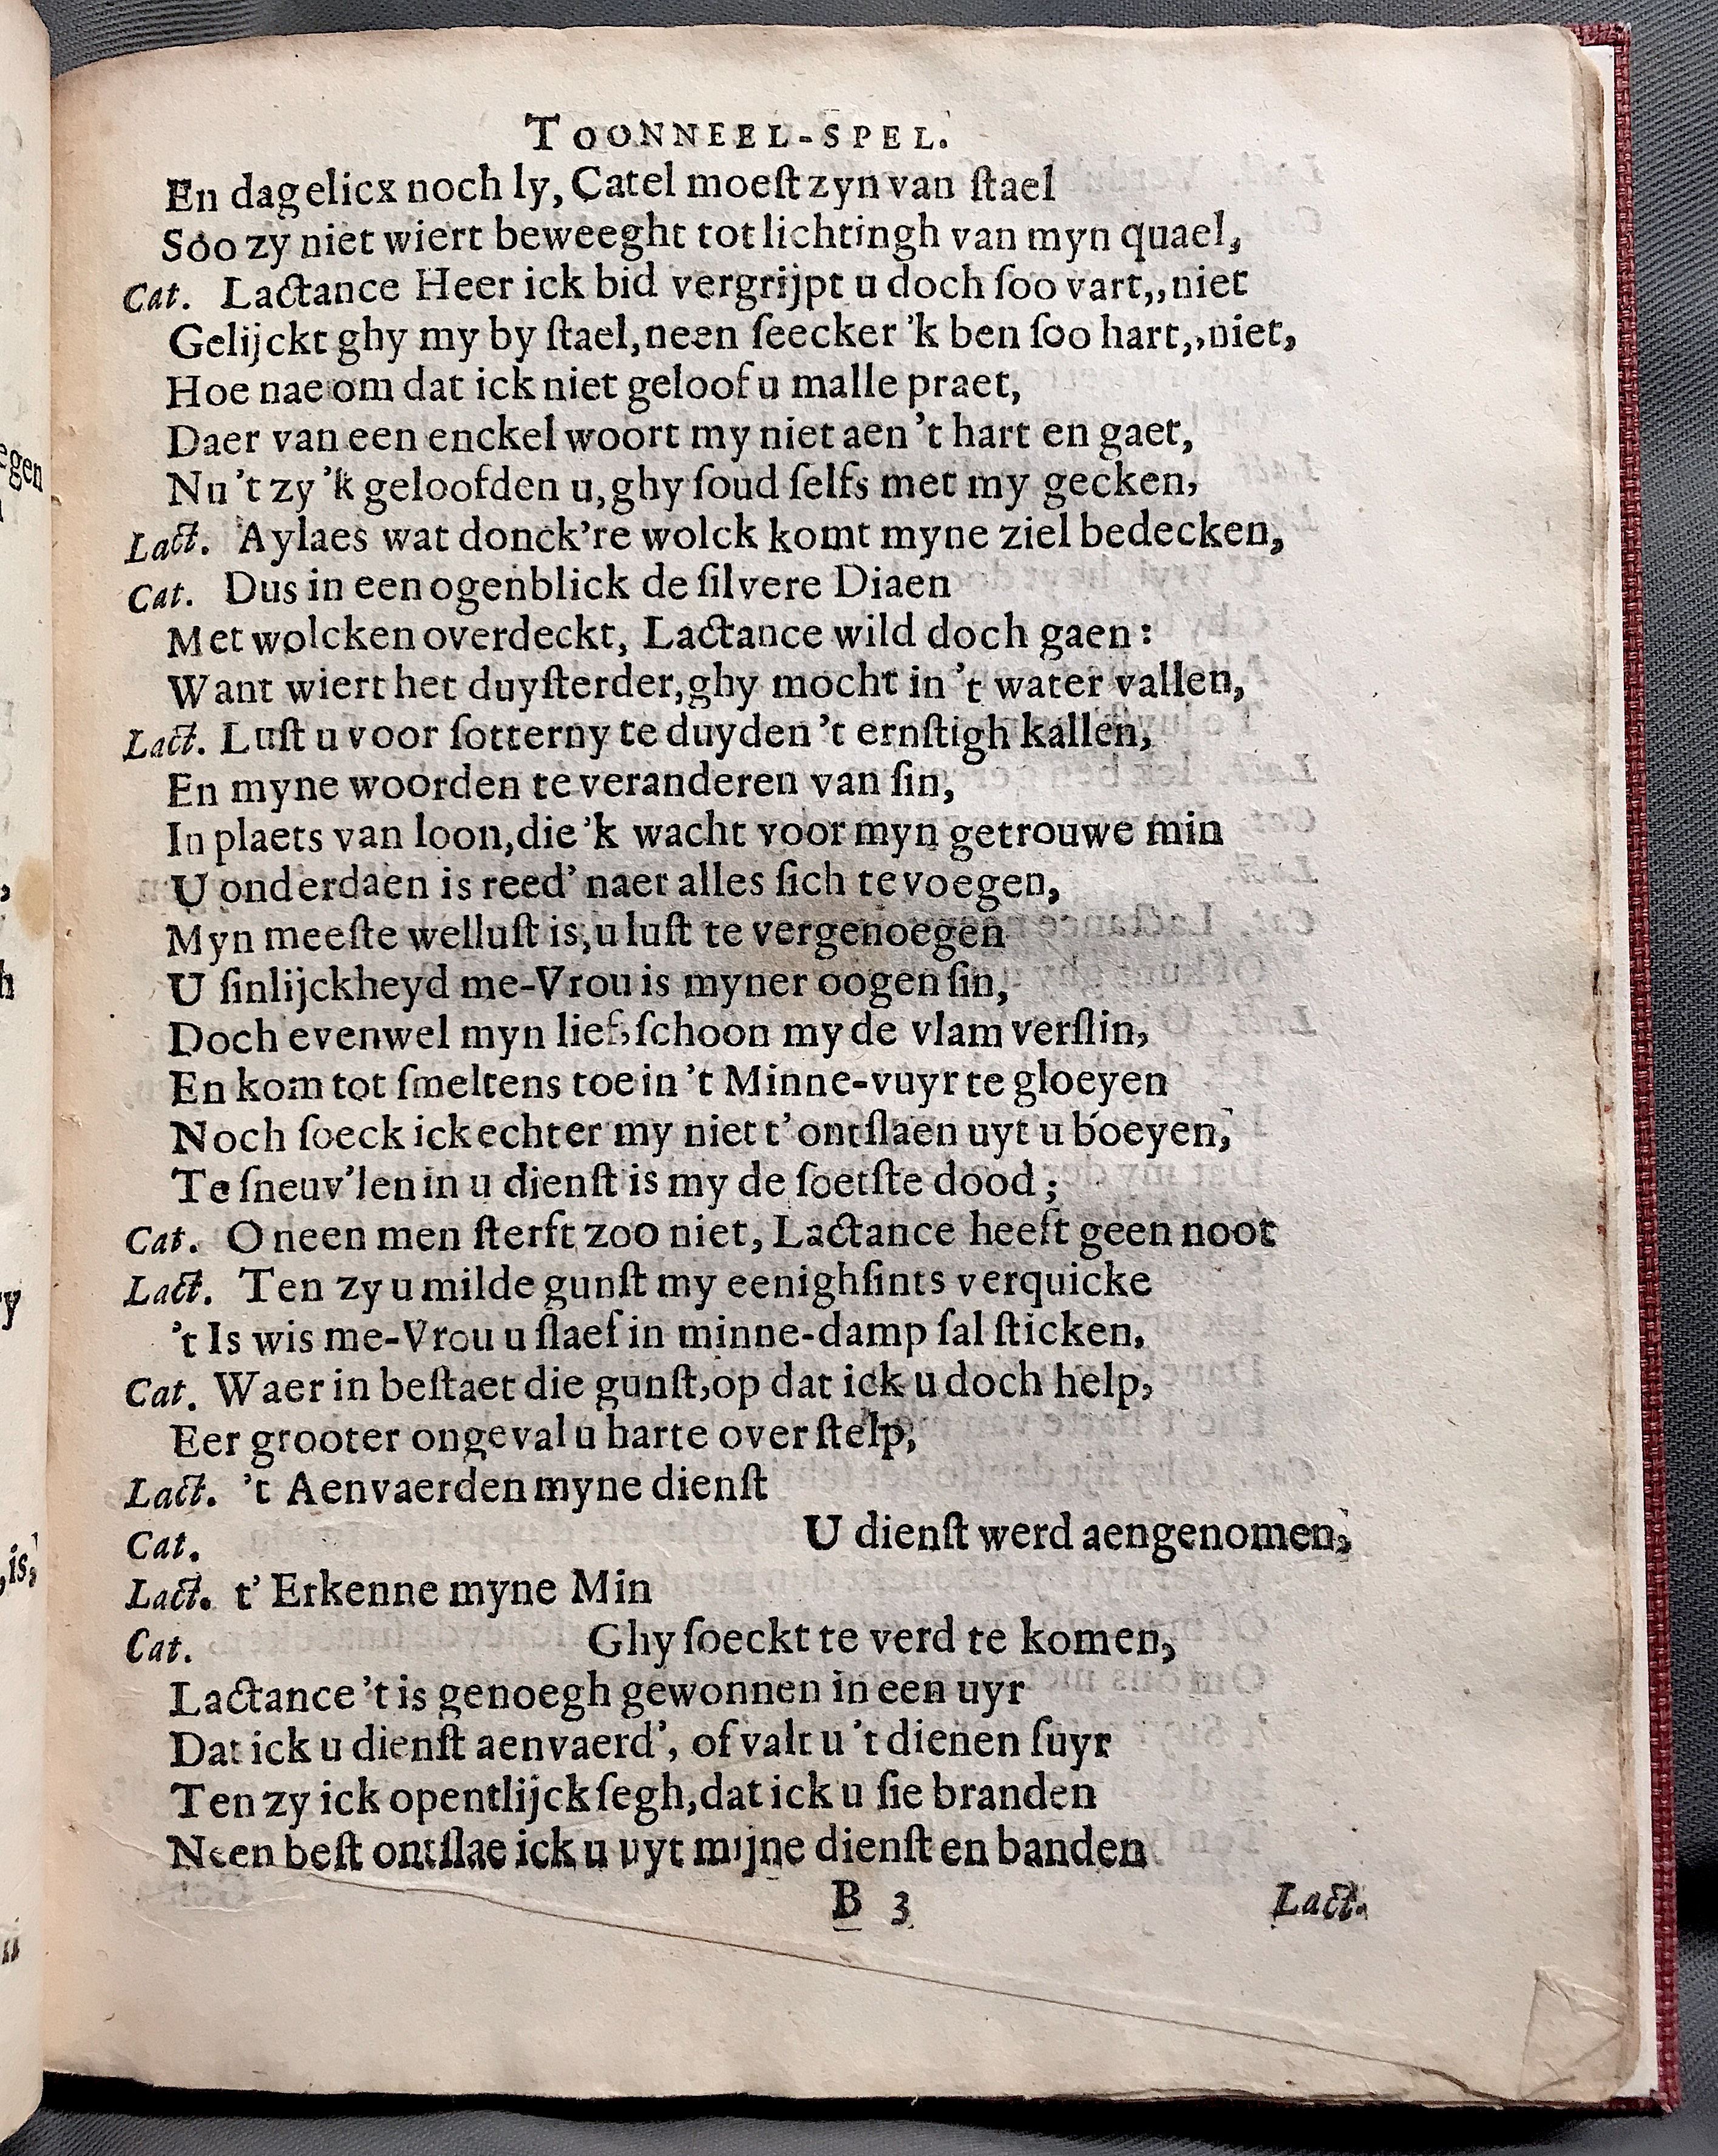 TOONNEEL-SPEL.
En dagelicx noch ly, Catel moeſt zyn van ſtael
Soo zy niet wiert beweeght tot lichtingh van myn quael,
Cat. Lactance Heer ick bid vergrijpt u doch ſoo vart,,niet
Gelijckt ghy my by ſtael, neen ſeecker 'k ben ſoo hart,,niet,
Hoe nae om dat ick niet geloof u malle praet,
Daer van een enckel woort my niet aen 't hart en gaet,
Nu 't zy 'k geloofden u, ghy ſoud ſelfs met my gecken,
Lact. Aylaes wat donck're wolck komt myne ziel bedecken,
Cat. Dus in een ogenblick de ſilvere Diaen
Met wolcken overdeckt, Lactance wild doch gaen:
Want wiert het duyſterder, ghy mocht in 't water vallen,
Lact. Luſt u voor ſotterny te duyden 't ernſtigh kallen,
En myne woorden te veranderen van ſin,
In plaets van loon, die 'k wacht voor myn getrouwe min
U onderdaen is reed' naer alles ſich te voegen,
Myn meeſte welluſt is, u luſt te vergenoegen
U ſinlijckheyd me-Vrou is myner oogen ſin,
Doch evenwel myn lief, ſchoon my de vlam verſlin,
En kom tot ſmeltens toe in 't Minne-vuyr te gloeyen
Noch ſoeck ick echter my niet t' ontſlaen uyt u boeyen,
Te ſneuv'len in u dienſt is my de ſoetſte dood;
Cat. O neen men ſterft zoo niet, Lactance heeft geen noot
Lact. Ten zy u milde gunſt my eenighſints verquicke
't Is wis me-Vrou u ſlaef in minne-damp ſal ſticken,
Cat. Waer in beſtaet die gunſt, op dat ick u doch help,
Eer grooter ongeval u harte over ſtelp,
Lact. 't Aenvaerden myne dienſt
Cat. U dienſt werd aengenomen,
Lact. t' Erkenne myne Min
Cat. Ghy ſoeckt te verd te komen,
Lactance 't is genoegh gewonnen in een uyr
Dat ick u dienſt aenvaerd', of valt u 't dienen ſuyr
Ten zy ick opentlijck ſegh, dat ick u ſie branden
Neen beſt ontſlae ick u uyt mijne dienſt en banden
B 3 Lact.